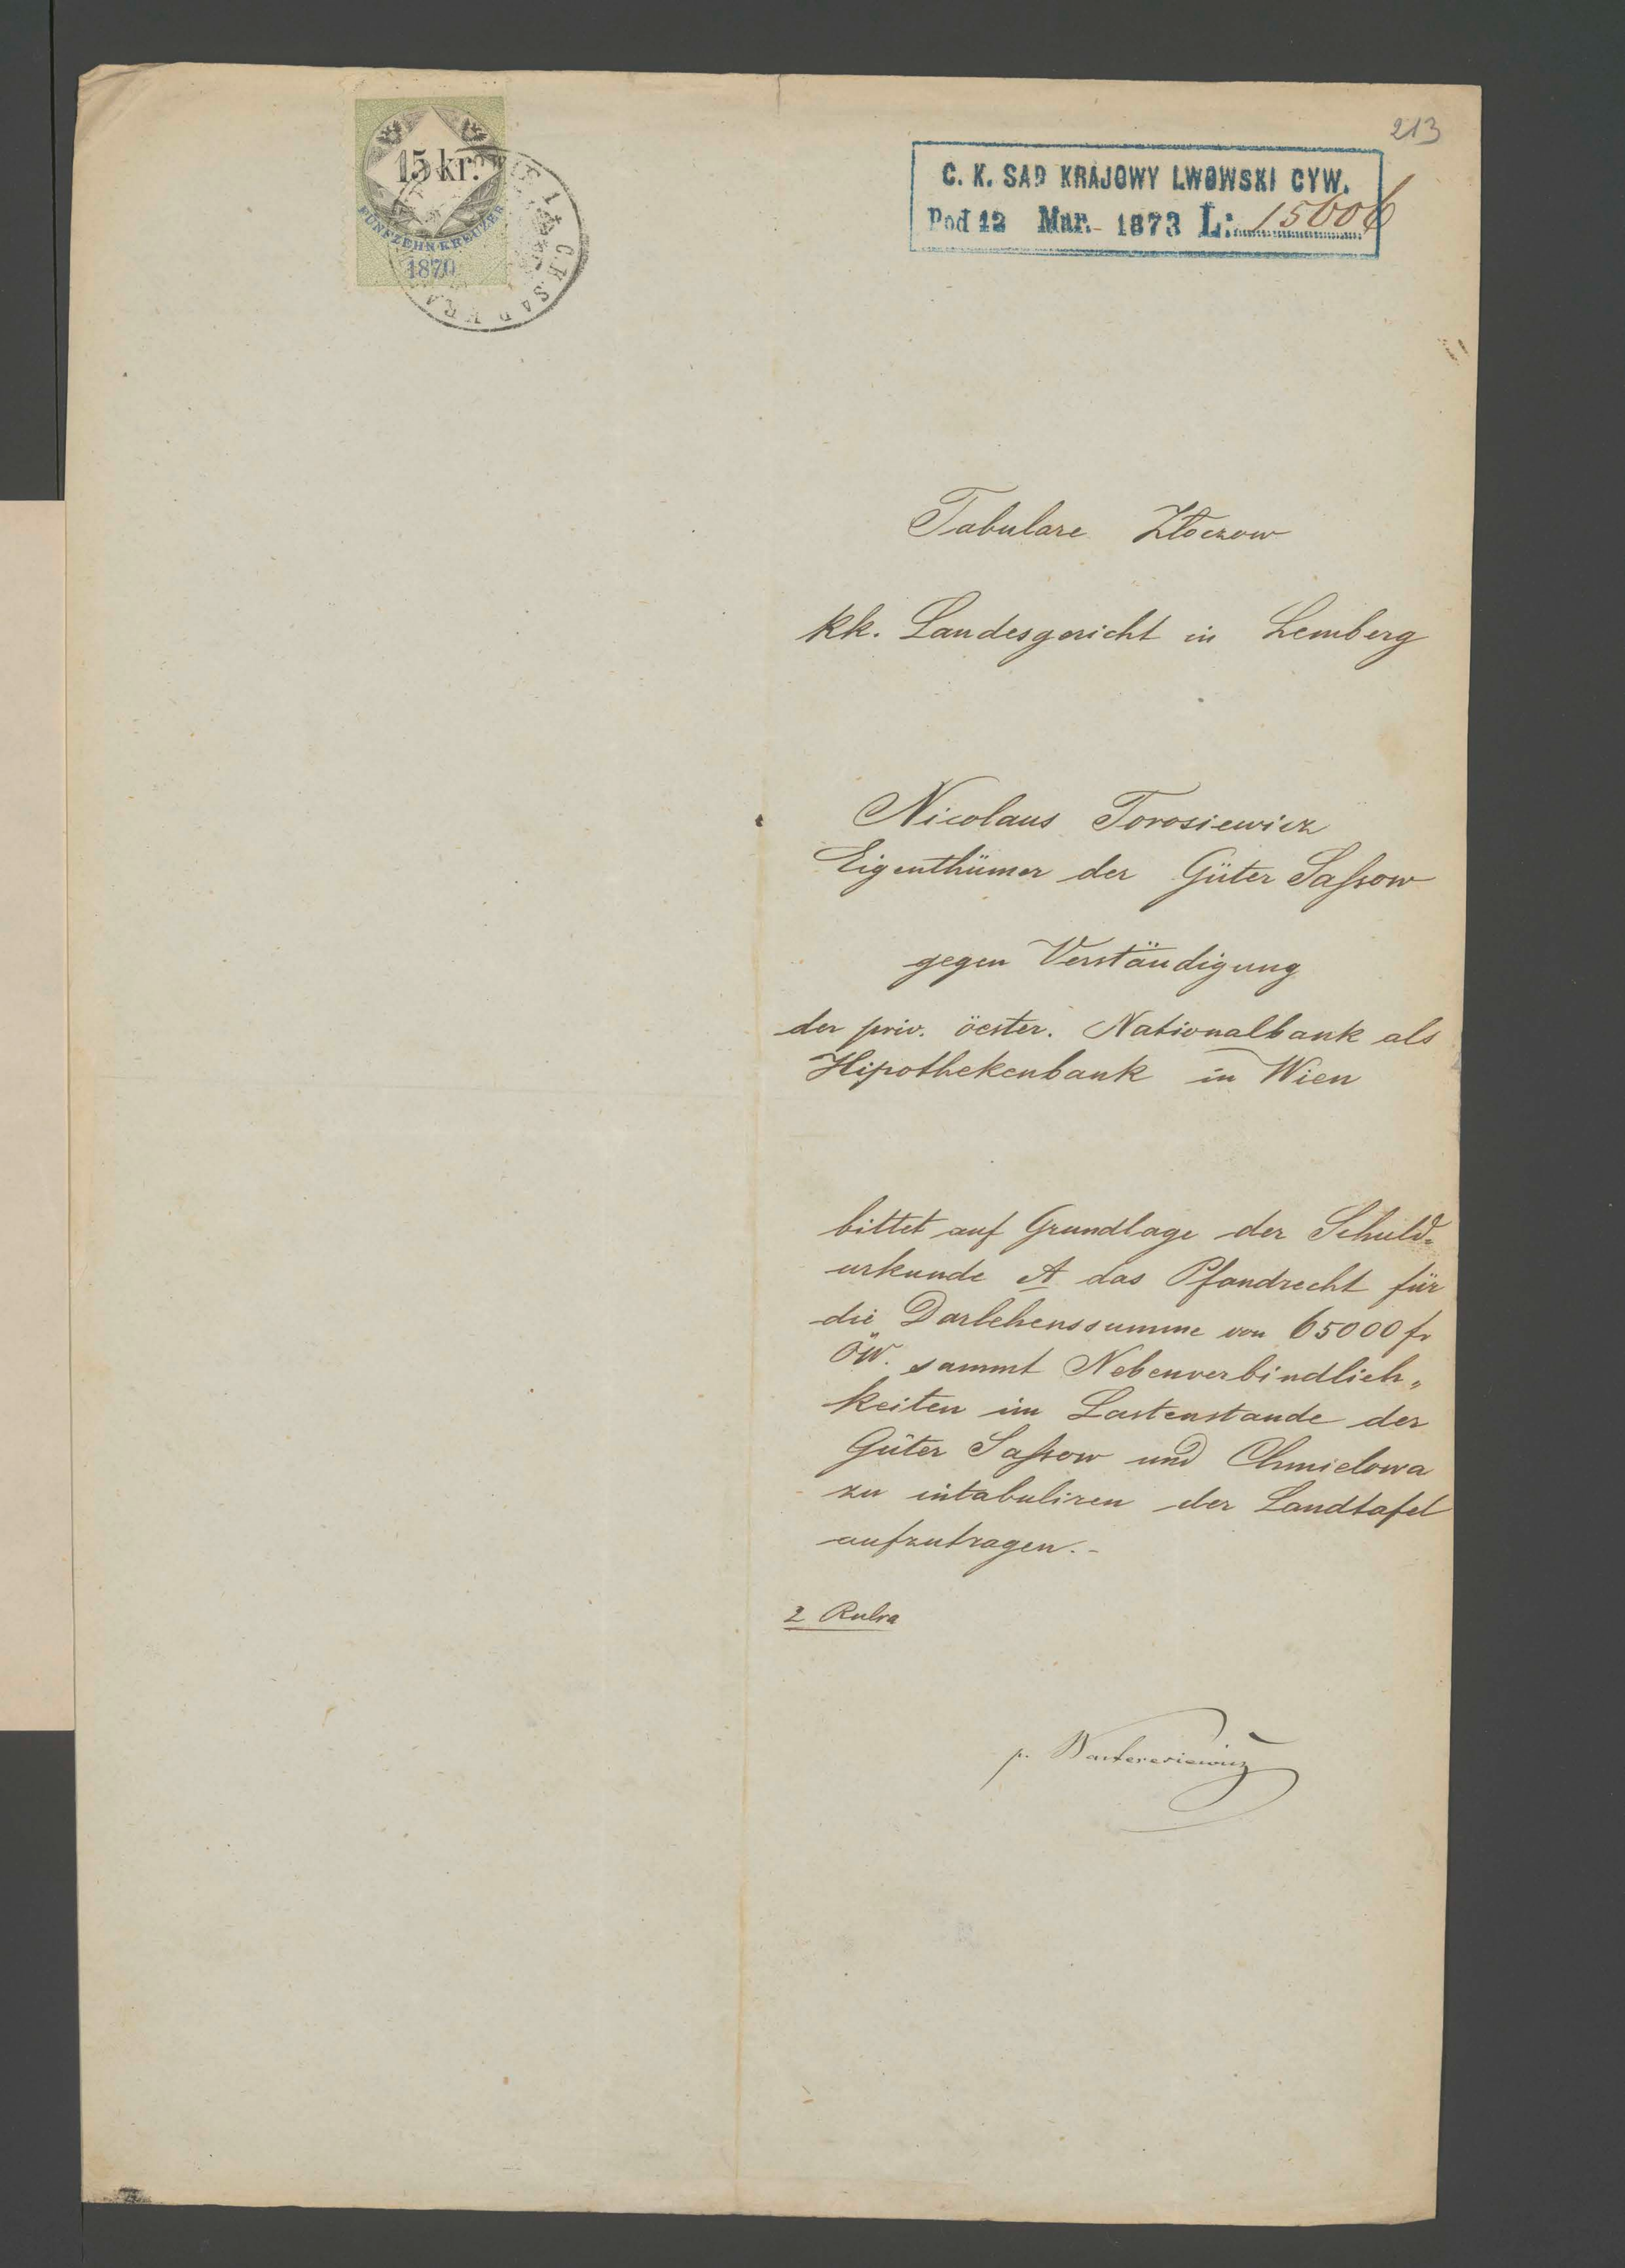 213
15 kr.
FÜNFZEHN KREUZER
1870
C. K. SAD KRA
C. K. SAD KRAJOWY LWOWSKI CYW.
Pod 12 Mar. 1873 L: 15606
Tabulare Złoczow
kk. Landesgericht in Lemberg
Nicolaus Torosiewicz
Eigenthümer der Güter Saßow
gegen Verständigung
der priv. öester. Nationalbank als
Hipothekenbank in Wien
bittet auf Grundlage der Schuld-
urkunde A das Pfandrecht für
die Darlehenssumme von 65000 fr
ÖW. sammt Nebenverbindlich„
keiten im Lastenstande der
Güter Saßow und Chmielowa
zu intabuliren der Landtafel
aufzutragen.-
2 Rubra
p. Warteresiewicz